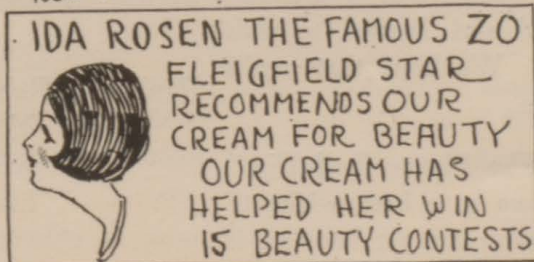 IDA ROSEN THE FAMOUS ZO
FLEIGFIELD STAR
RECOMMENDS OUR
CREAM FOR BEAUTY
OUR CREAM HAS
HELPED HER WIN
15 BEAUTY CONTESTS